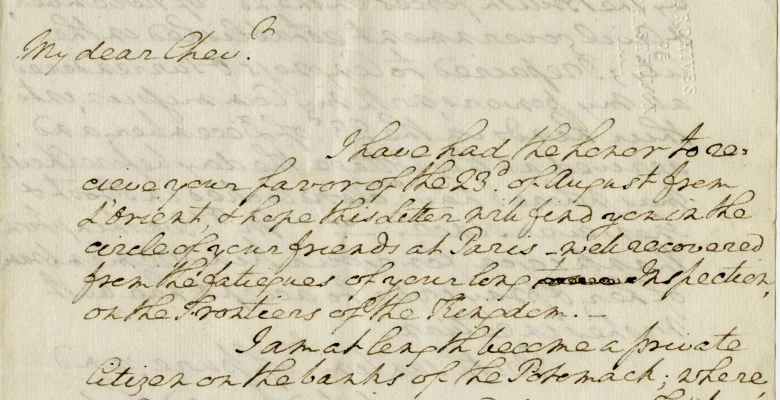 My dear Chev.r
I have had the honor to re=
cieve your favor of the 23d. of August from
L'Orient, & hope this Letter will find you in the
circle of your friends at Paris - well recovered
from the fatigues of your long Inspection,
on the Frontiers of the Kingdom. -
I am at length become a private
Citizen on the banks of the Potomack; where,